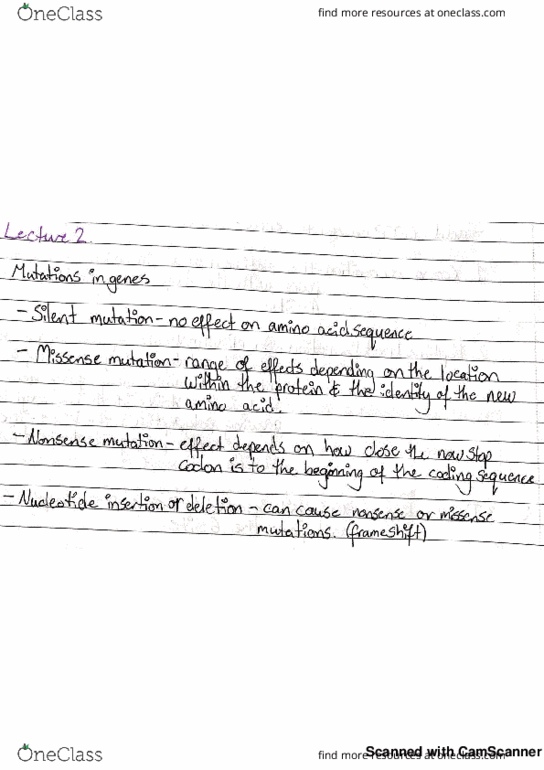 OneClass
find more resources at oneclass.com
Lecture 2
Mutations in genes
- Silent mutation - no effect on amino acid sequence
- Missense mutation - range of effects depending on the location
within the protein & the identity of the new
amino acid.
- Nonsense mutation - effect depends on how close the new stop
codon is to the beginning of the coding sequence
- Nucleotide insertion or deletion - can cause nonsense or missense
mutations. (frameshift)
OneClass
find more resources at oneclass.com
Scanned with CamScanner